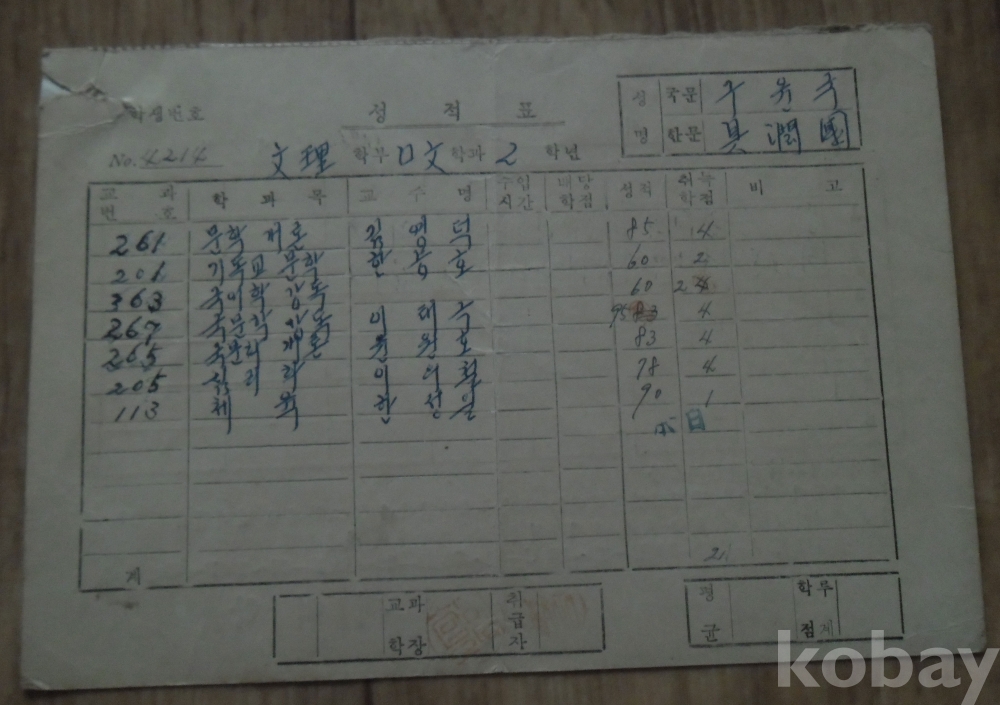 성 국문 구 윤 국
학생번호 성 적 표
명 한문 具 潤 國
No. 4214 文理 학부 口文 학과 2 학년
교 과 번 호 학 과 목 교 수 명 수업 시간 배당 학점 성적 취득 학점 비 고
261 문학 개론 김 영 덕 85 4
201 기독교 문학 한 영 호 60 2
363 국어학 강독 60 2
267 국문학 강독 이 태 극 95 4
265 국문학 개론 호 83 4
205 심 리 학 이 의 철 78 4
113 체 육 선 90 1
21
계
교과 취급자 평 학무
학장 균 점계
kobay